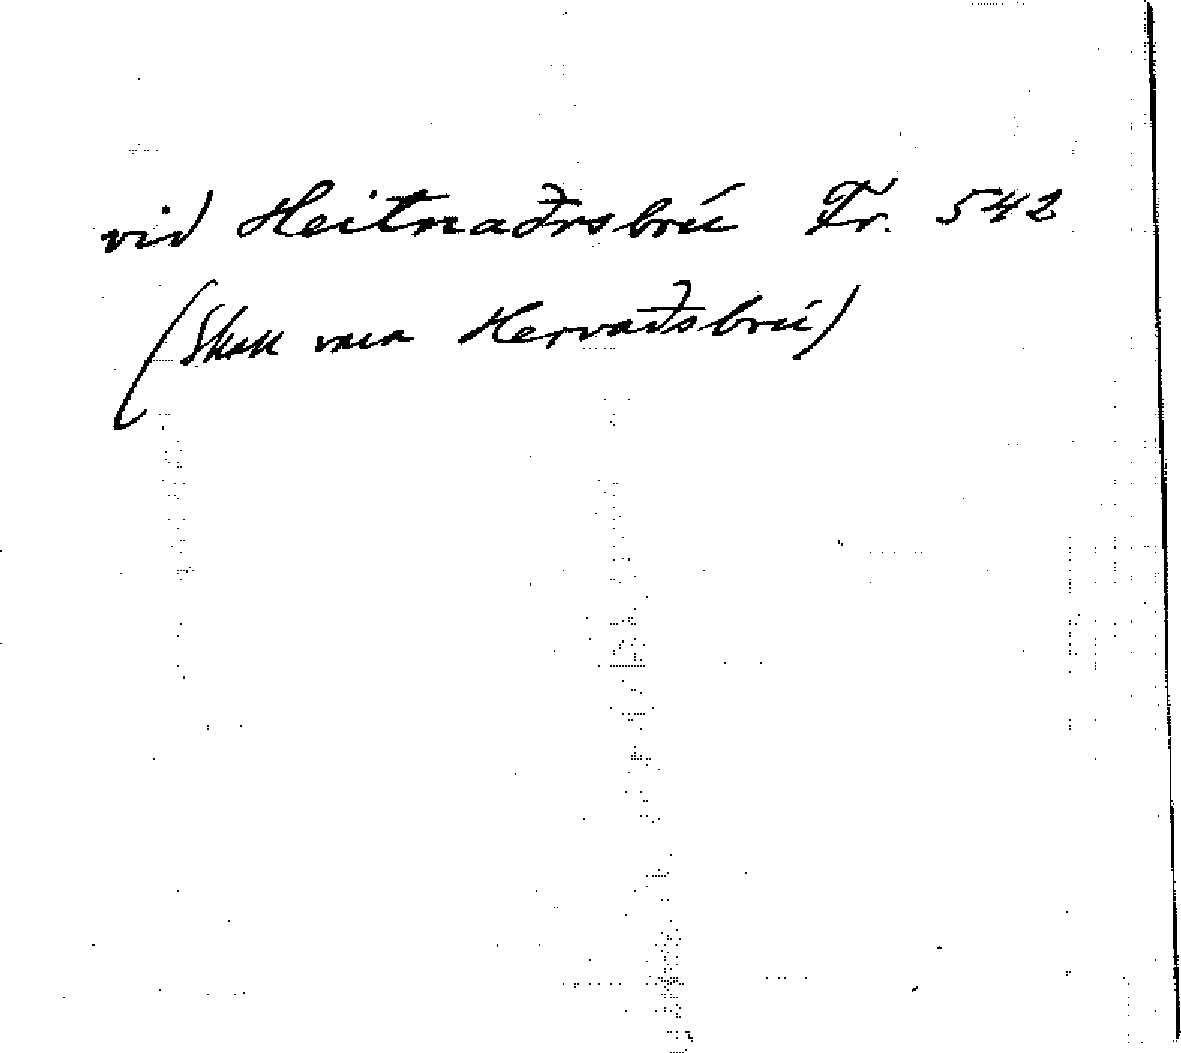 við Heitnaðrsbrú Fr. 542
(Skall vara Hervaðsbrú)